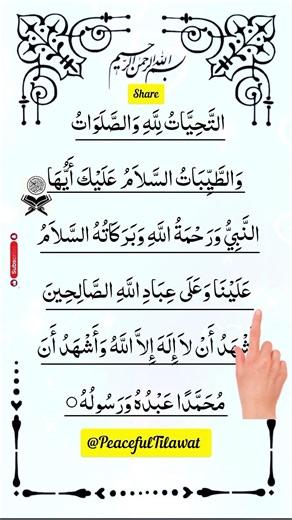 بسم الله الرحمن الرحيم
Share
التَّحِيَّاتُ لِلَّهِ وَالصَّلَوَاتُ
وَالطَّيِّبَاتُ السَّلاَمُ عَلَيْكَ أَيُّهَا
النَّبِيُّ وَرَحْمَةُ اللَّهِ وَبَرَكَاتُهُ السَّلاَمُ
عَلَيْنَا وَعَلَى عِبَادِ اللَّهِ الصَّالِحِينَ
شْهَدُ أَنْ لاَ إِلَهَ إِلاَّ اللَّهُ وَأَشْهَدُ أَنَ
مُحَمَّدًا عَبْدُهُ وَرَسُولُهُ
@PeacefulTilawat